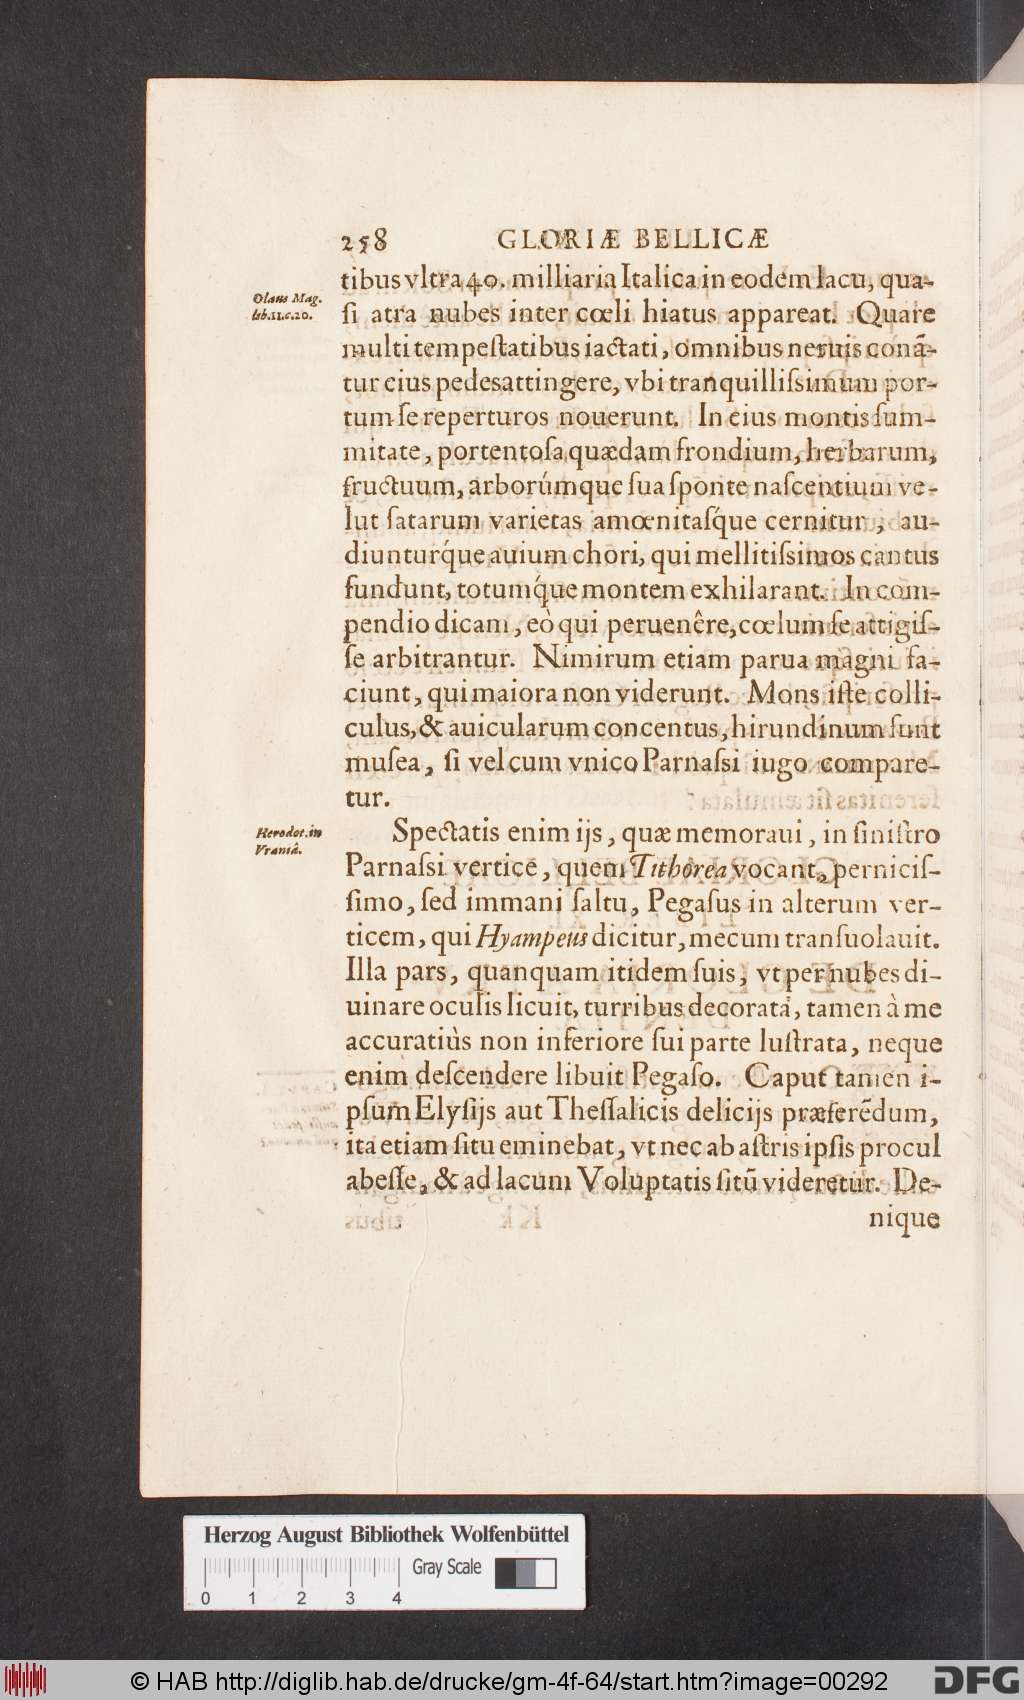 258 GLORIÆ BELLICÆ
tibus vltra 40. milliaria Italica in eodem lacu, qua-
Olaus Mag.
lib.11.c.20.
ſi atra nubes inter cœli hiatus appareat. Quare
multi tempeſtatibus iactati, omnibus neruis conã-
tur eius pedes attingere, vbi tranquilliſsimum por-
tum ſe reperturos nouerunt. In eius montis ſum-
mitate, portentoſa quædam frondium, herbarum,
fructuum, arborúmque ſua ſponte naſcentium ve-
lut ſatarum varietas amœnitaſq́ue cernitur, au-
diunturq́ue auium chori, qui mellitiſsimos cantus
fundunt, totumq́ue montem exhilarant. In com-
pendio dicam, eò qui peruenêre, cœlum ſe attigiſ-
ſe arbitrantur. Nimirum etiam parua magni fa-
ciunt, qui maiora non viderunt. Mons iſte colli-
culus, & auicularum concentus, hirundinum ſunt
muſea, ſi vel cum vnico Parnaſsi iugo compare-
tur.
Herodot. in
Vraniâ.
Spectatis enim ijs, quæ memoraui, in ſiniſtro
Parnaſsi vertice, quem Tithorea vocant, perniciſ-
ſimo, ſed immani ſaltu, Pegaſus in alterum ver-
ticem, qui Hyampeus dicitur, mecum tranſuolauit.
Illa pars, quanquam itidem ſuis, vt per nubes di-
uinare oculis licuit, turribus decorata, tamen à me
accuratiùs non inferiore ſui parte luſtrata, neque
enim deſcendere libuit Pegaſo. Caput tamen i-
pſum Elyſijs aut Theſſalicis delicijs præferẽdum,
ita etiam ſitu eminebat, vt nec ab aſtris ipſis procul
abeſſe, & ad lacum Voluptatis ſitũ videretur. De-
nique
Herzog August Bibliothek Wolfenbüttel
Gray Scale
0 1 2 3 4
© HAB http://diglib.hab.de/drucke/gm-4f-64/start.htm?image=00292 DFG